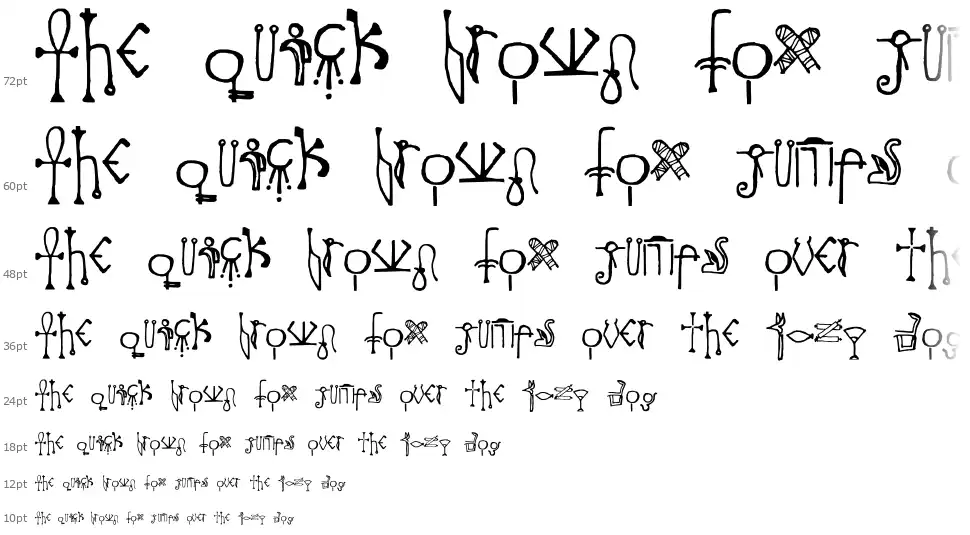 72pt The quick brown fox ju
60pt The quick brown fox jumps o
48pt The quick brown fox jumps over the
36pt The quick brown fox jumps over the lazy dog
24pt The quick brown fox jumps over the lazy dog
18pt The quick brown fox jumps over the lazy dog
12pt The quick brown fox jumps over the lazy dog
10pt The quick brown fox jumps over the lazy dog